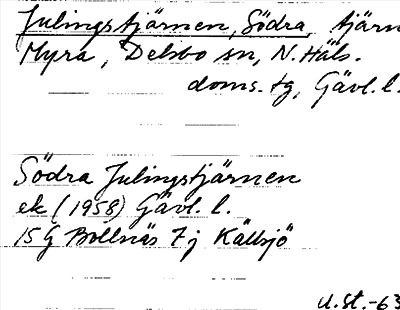 Julingstjärnen, Södra, tjärn
Myra, Delsbo sn, N. Häls.
doms. tg, Gävl. l.
Södra Julingstjärnen
ek (1958) Gävl. l.
15 G Bollnäs 7 j Källsjö
U. St. -63